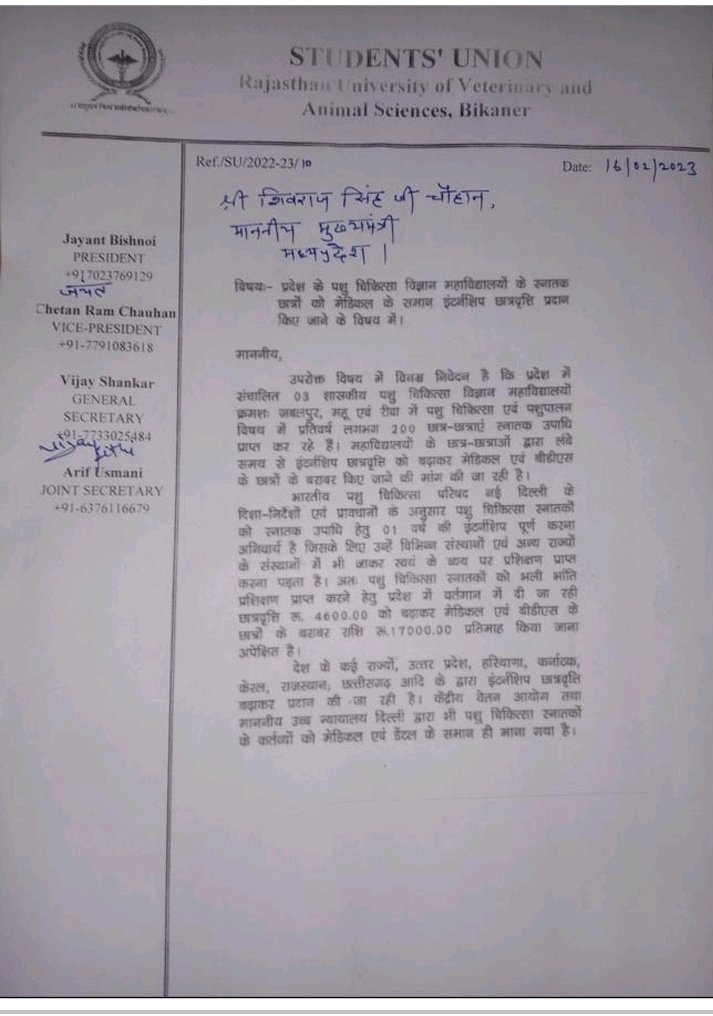 STUDENTS' UNION
Rajasthan University of Veterinary and
Animal Sciences, Bikaner
Ref./SU/2022-23/10
Date: 16/02/2023
श्री शिवराज सिंह जी चौहान,
माननीय मुख्यमंत्री
मध्यप्रदेश ।
Jayant Bishnoi
PRESIDENT
+917023769129
जयंत
Chetan Ram Chauhan
VICE-PRESIDENT
+91-7791083618
Vijay Shankar
GENERAL
SECRETARY
+91-7733025484
Arif Usmani
JOINT SECRETARY
+91-6376116679
विषयः- प्रदेश के पशु चिकित्सा विज्ञान महाविद्यालयों के स्नातक
छात्रों को मेडिकल के समान इंटर्नशिप छात्रवृत्ति प्रदान
किए जाने के विषय में।
माननीय,
उपरोक्त विषय में विनम्र निवेदन है कि प्रदेश में
संचालित 03 शासकीय पशु चिकित्सा विज्ञान महाविद्यालयों
क्रमशः जबलपुर, महू एवं रीवा में पशु चिकित्सा एवं पशुपालन
विषय में प्रतिवर्ष लगभग 200 छात्र-छात्राएं स्नातक उपाधि
प्राप्त कर रहे हैं। महाविद्यालयों के छात्र-छात्राओं द्वारा लंबे
समय से इंटर्नशिप छात्रवृत्ति को बढ़ाकर मेडिकल एवं बीडीएस
के छात्रों के बराबर किए जाने की मांग की जा रही है।
भारतीय पशु चिकित्सा परिषद नई दिल्ली के
दिशा-निर्देशों एवं प्रावधानों के अनुसार पशु चिकित्सा स्नातकों
को स्नातक उपाधि हेतु 01 वर्ष की इंटर्नशिप पूर्ण करना
अनिवार्य है जिसके लिए उन्हें विभिन्न संस्थानों एवं अन्य राज्यों
के संस्थानों में भी जाकर स्वयं के व्यय पर प्रशिक्षण प्राप्त
करना पड़ता है। अतः पशु चिकित्सा स्नातकों को भली भांति
प्रशिक्षण प्राप्त करने हेतु प्रदेश में वर्तमान में दी जा रही
छात्रवृत्ति रू. 4600.00 को बढ़ाकर मेडिकल एवं बीडीएस के
छात्रों के बराबर राशि रू.17000.00 प्रतिमाह किया जाना
अपेक्षित है।
देश के कई राज्यों, उत्तर प्रदेश, हरियाणा, कर्नाटक,
केरल, राजस्थान; छत्तीसगढ़ आदि के द्वारा इंटर्नशिप छात्रवृत्ति
बढ़ाकर प्रदान की जा रही है। केंद्रीय वेतन आयोग तथा
माननीय उच्च न्यायालय दिल्ली द्वारा भी पशु चिकित्सा स्नातकों
के कर्तव्यों को मेडिकल एवं डेंटल के समान ही माना गया है।